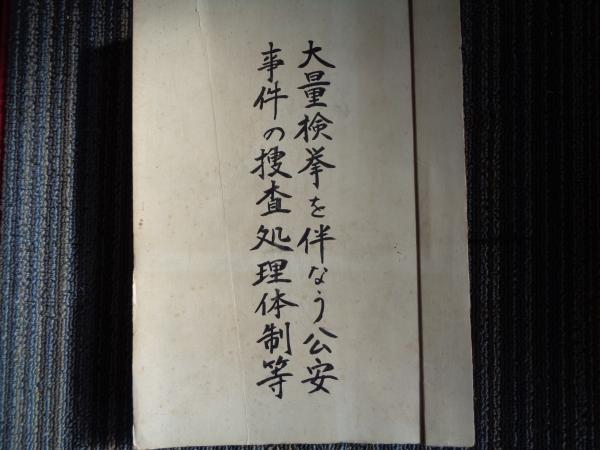 大量検挙を伴なう公安
事件の捜査処理体制等